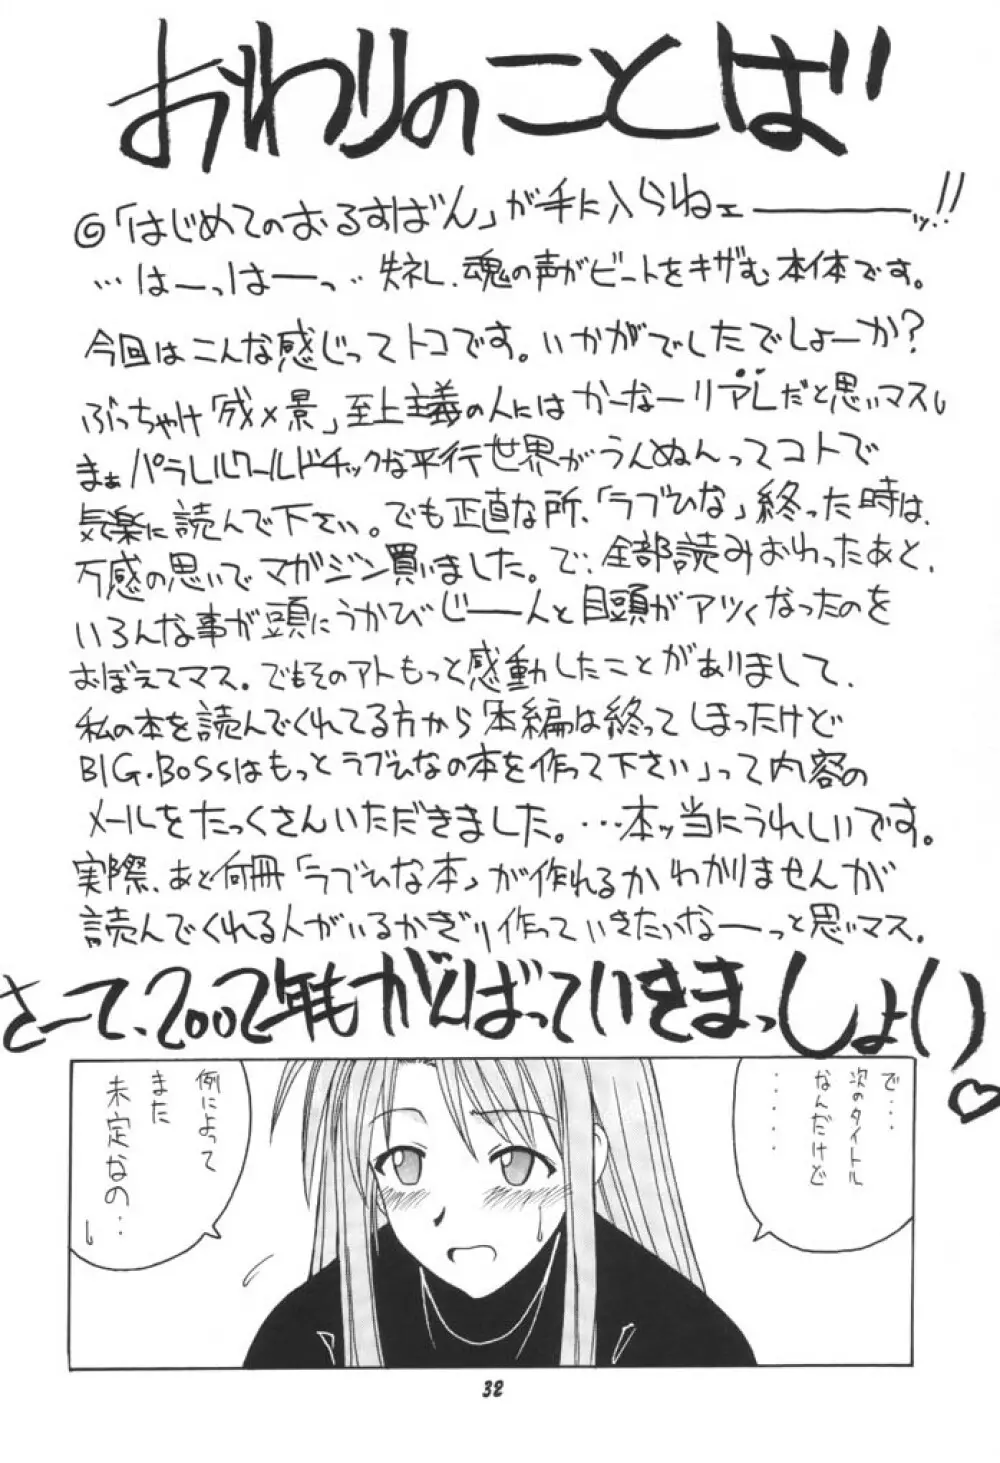 おわりのことば
◎「はじめてのおるすばん」が手に入らねェーーーッ!!
…はーっはーっ… 失礼、魂の声がビートをキザむ本体です。
今回はこんな感じってトコです。いかがでしたでしょーか?
ぶっちゃけ「成×景」至上主義の人にはかーなーりアレだと思いマスし
まぁパラレルワールドチックな平行世界がうんぬんってコトで
気楽に読んで下さい。でも正直な所、「ラブひな」終った時は、
万感の思いでマガジン買いました。で、全部読みおわったあと、
いろんな事が頭にうかびじーーんと目頭がアツくなったのを
おぼえてマス。でもそのアトもっと感動したことがありまして、
私の本を読んでくれてる方から「本編は終ってしまったけど
BIG.BOSSはもっとラブひなの本を作って下さい」って内容の
メールをたっくさんいただきました。…本ッ当にうれしいです。
実際、あと何冊「ラブひな本」が作れるかわかりませんが
読んでくれる人がいるかぎり作っていきたいなーーっと思いマス。
さーて、2002年もがんばっていきまっしょい♡
で…
次のタイトル
なんだけど
……
例によって
また
未定なの…
32